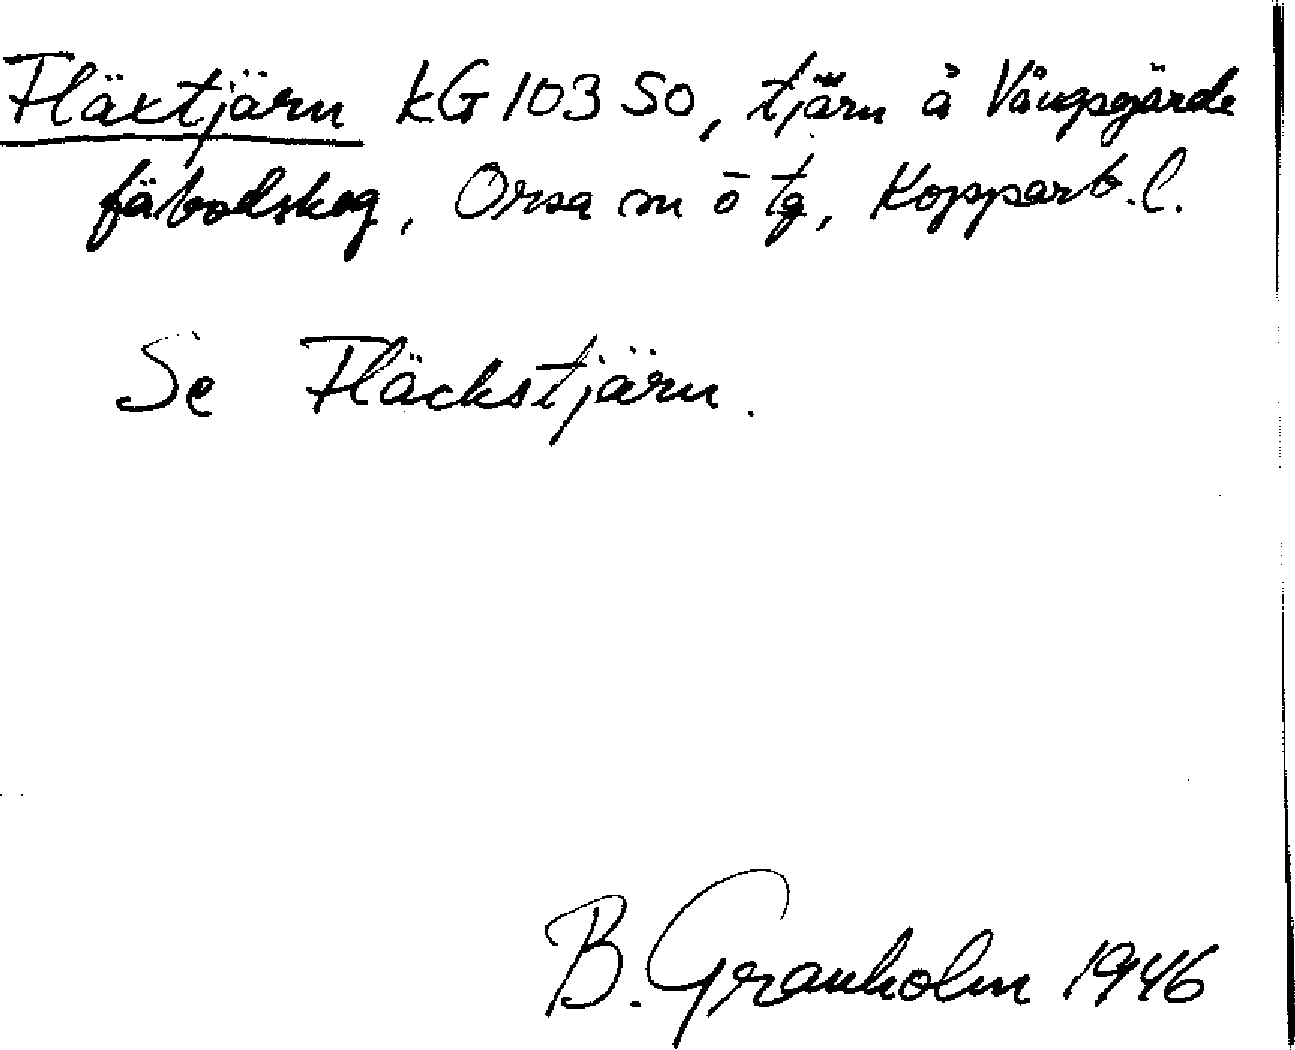 Fläxtjärn KG 103 SO, tjärn å Vångsgärde
fäbodskog, Orsa sn o tg, Kopparb. l.
Se Fläckstjärn.
B. Granholm 1946